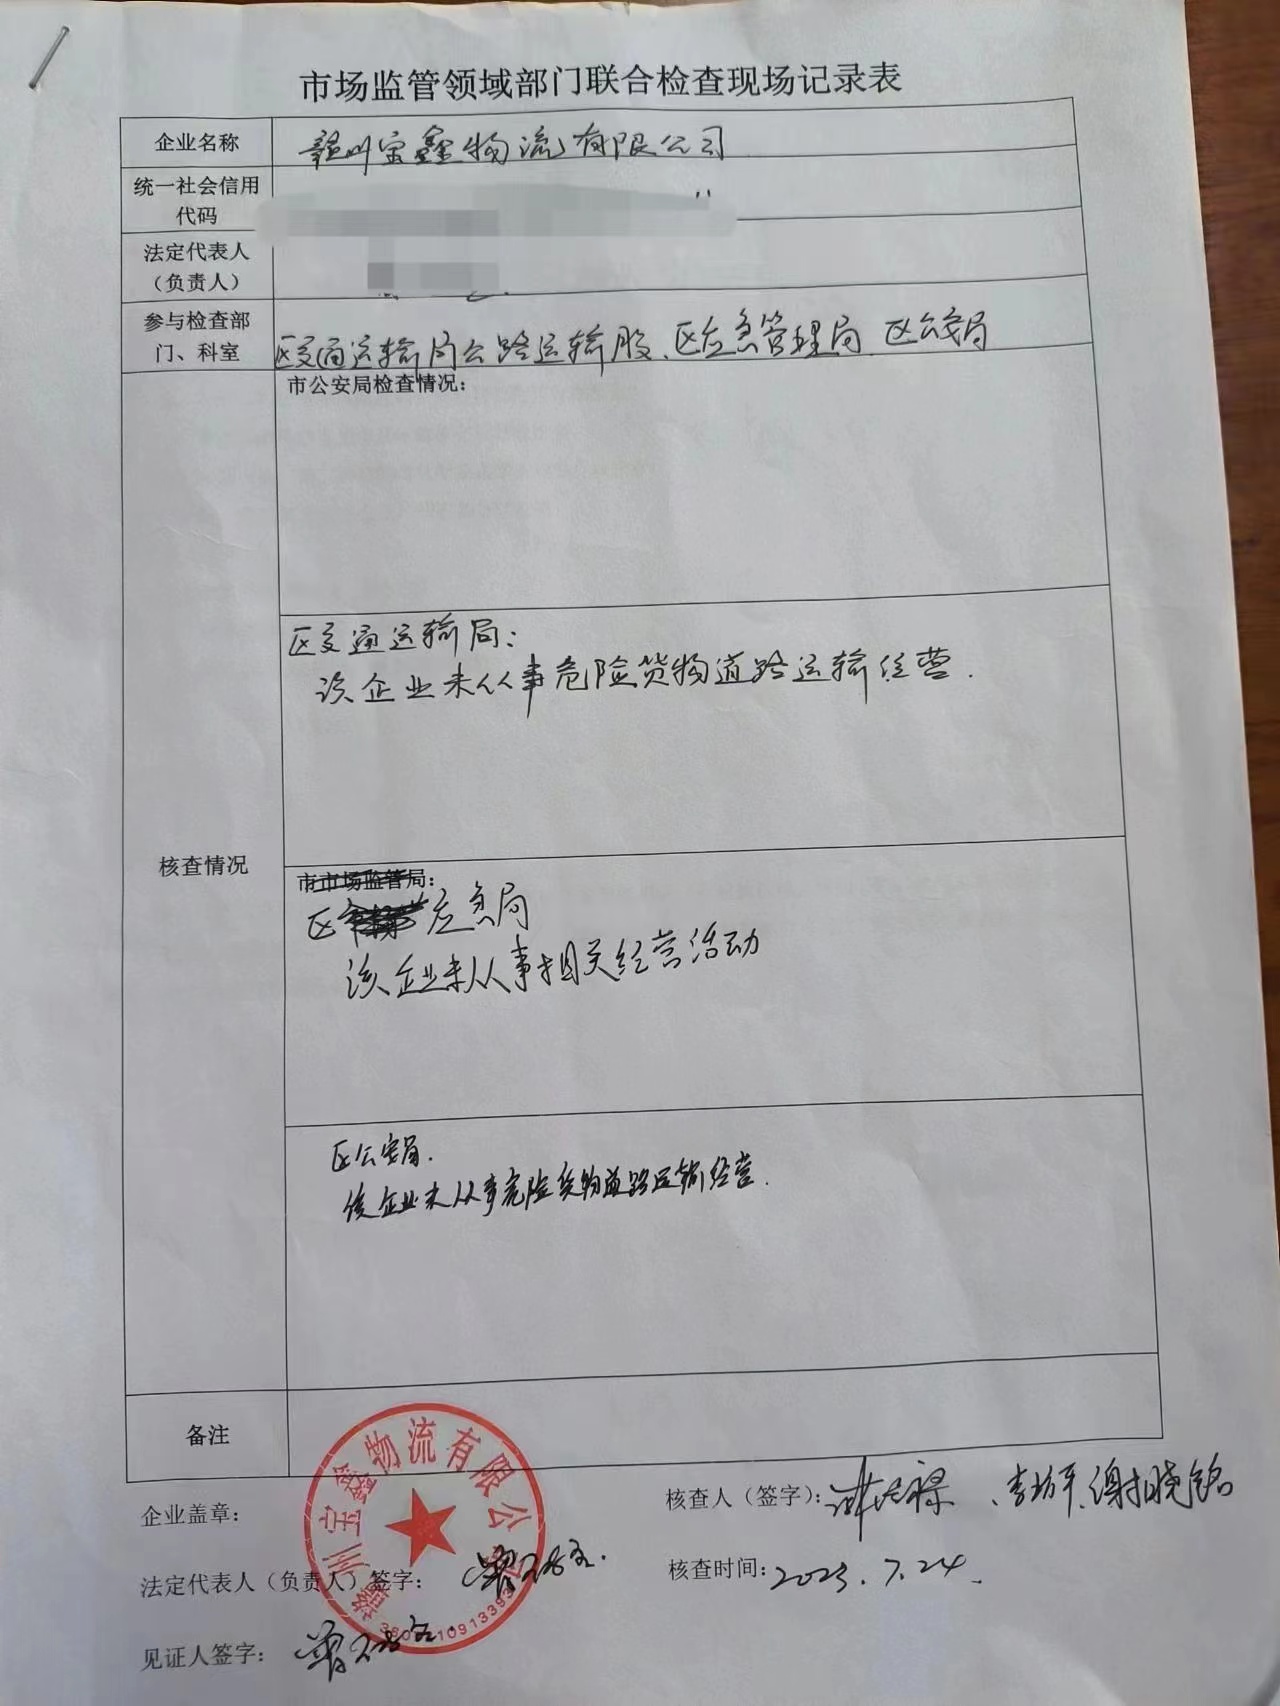 市场监管领域部门联合检查现场记录表
企业名称
赣州宝鑫物流有限公司
统一社会信用
代码
法定代表人
（负责人）
参与检查部
门、科室
区交通运输局公路运输股、区应急管理局、区公安局
核查情况
市公安局检查情况：
区交通运输局：
该企业未从事危险货物道路运输经营.
市市场监管局：
区应急局
该企业未从事相关经营活动
区公安局.
该企业未从事危险货物道路运输经营.
备注
企业盖章：
赣州宝鑫物流有限公司
核查人（签字）：
法定代表人（负责人）签字：
核查时间：2023.7.24
见证人签字：